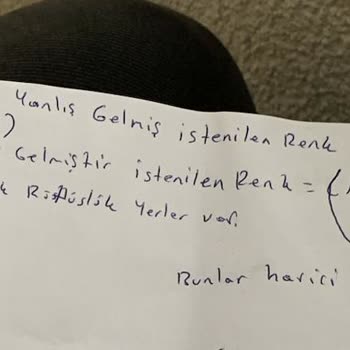 Yanlış Gelmiş istenilen Renk
)
Gelmiştir istenilen Renk = (
Yerler var.
Bunlar harici